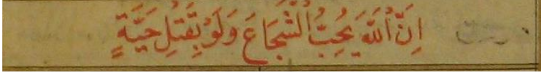 اِنَّ اللّٰهَ يُحِبُّ الشُّجَاعَ وَلَوْ بِقَتْلِ حَيَّةٍ